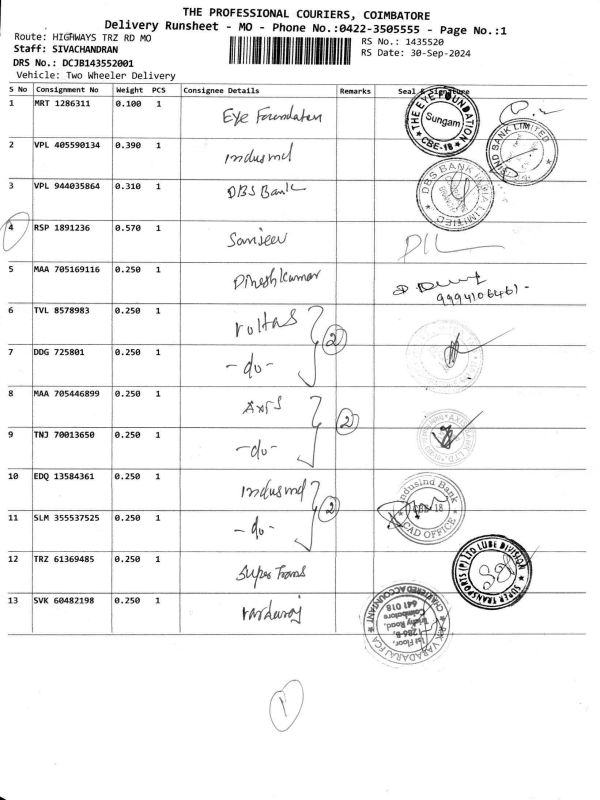 THE PROFESSIONAL COURIERS, COIMBATORE
Delivery Runsheet - MO - Phone No.:0422-3505555 - Page No.:1
Route: HIGHWAYS TRZ RD MO
RS No.: 1435520
Staff: SIVACHANDRAN
RS Date: 30-Sep-2024
DRS No.: DCJB143552001
Vehicle: Two Wheeler Delivery
S No Consignment No Weight PCS Consignee Details Remarks Seal & Signature
1 MRT 1286311 0.100 1 Eye Foundation
THE EYE FOUNDATION Sungam CBE-18
2 VPL 405590134 0.390 1 Indusind
3 VPL 944035864 0.310 1 DBS Bank
DBS BANK INDIA LIMITED
4 RSP 1891236 0.570 1 Sanjeev
5 MAA 705169116 0.250 1 Dinesh kumar
9994106461-
6 TVL 8578983 0.250 1 voltas
2
7 DDG 725801 0.250 1 -do-
8 MAA 705446899 0.250 1 Axis
2
9 TNJ 70013650 0.250 1 -do-
10 EDQ 13584361 0.250 1 Indusind
Indusind Bank CBE-18 CAD OFFICE
2
11 SLM 355537525 0.250 1 -do-
12 TRZ 61369485 0.250 1 Super Trans
SUPER TRANSPORTS (P) LTD LUBE DIVISION
13 SVK 60482198 0.250 1 varduraj
R.K VARADARAJ FCA CHARTERED ACCOUNTANT
1st Floor,
1286-B,
Trichy Road,
Coimbatore
641 018